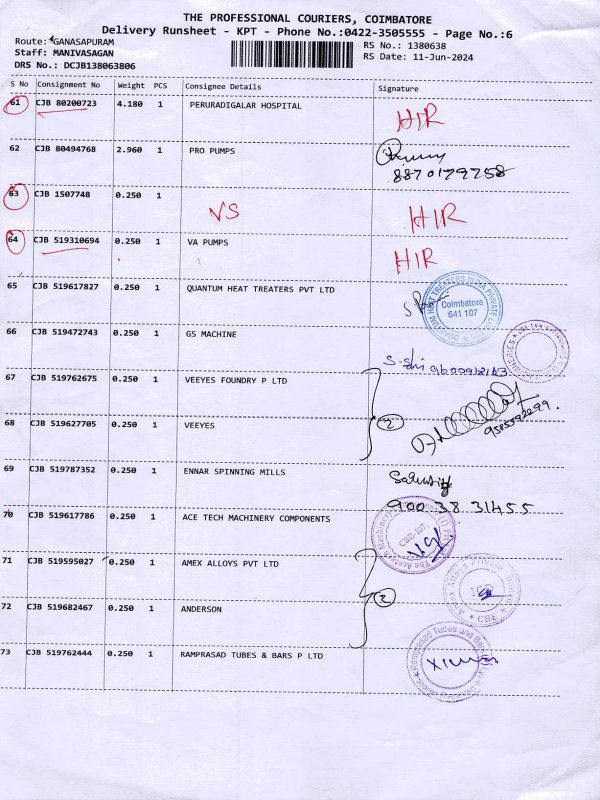 THE PROFESSIONAL COURIERS, COIMBATORE
Delivery Runsheet - KPT - Phone No.:0422-3505555 - Page No.:6
Route: GANASAPURAM
Staff: MANIVASAGAN
DRS No.: DCJB138063806
RS No.: 1380638
RS Date: 11-Jun-2024
S No Consignment No Weight PCS Consignee Details Signature
61 CJB 80200723 4.180 1 PERURADIGALAR HOSPITAL HIR
62 CJB 80494768 2.960 1 PRO PUMPS
8870179758
63 CJB 1507748 0.250 1 VS HIR
64 CJB 519310694 0.250 1 VA PUMPS HIR
65 CJB 519617827 0.250 1 QUANTUM HEAT TREATERS PVT LTD
QUANTUM HEAT TREATERS INDIA PRIVATE
Coimbatore
641 107
66 CJB 519472743 0.250 1 GS MACHINE
67 CJB 519762675 0.250 1 VEEYES FOUNDRY P LTD
2
68 CJB 519627705 0.250 1 VEEYES
69 CJB 519787352 0.250 1 ENNAR SPINNING MILLS
900 38 31455
70 CJB 519617786 0.250 1 ACE TECH MACHINERY COMPONENTS
71 CJB 519595027 0.250 1 AMEX ALLOYS PVT LTD
CBE
72 CJB 519682467 0.250 1 ANDERSON
2
73 CJB 519762444 0.250 1 RAMPRASAD TUBES & BARS P LTD
Ramprasad Tubes and Bars